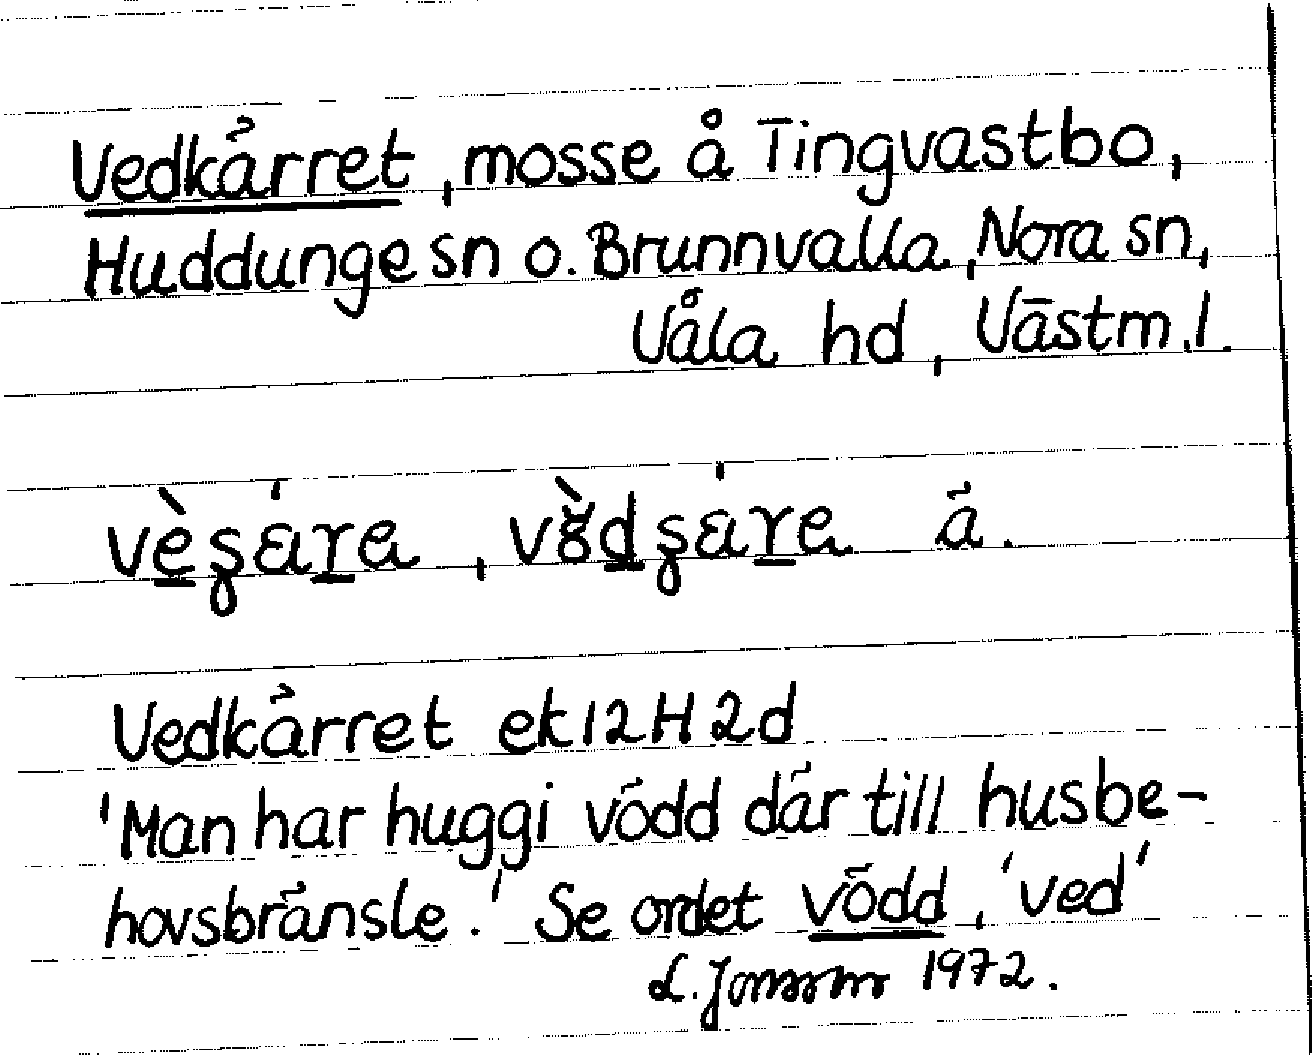 Vedkärret, mosse å Tingvastbo,
Huddunge sn o. Brunnvalla, Nora sn,
Våla hd, Västm. l.
ä.
Vedkärret ek 12 H 2d
'Man har huggi vödd där till husbe-
hovsbränsle.' Se ordet vödd, 'ved'
L. Jonsson 1972.